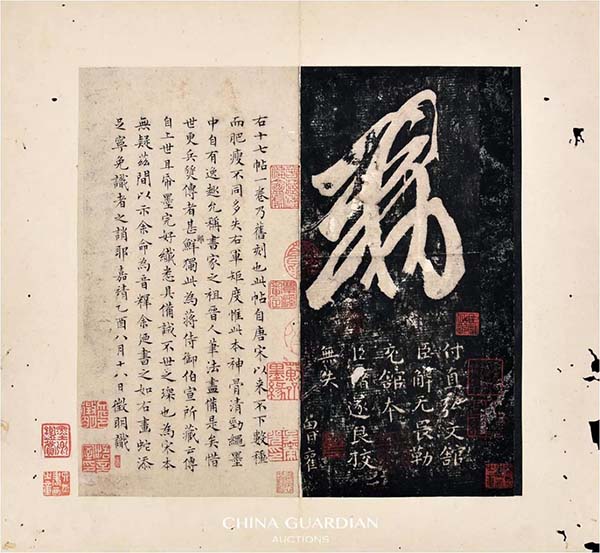 付直弘文館
臣解无畏勒
充館本
臣褚遂良挍
無失
曾雚
右十七帖一卷乃舊刻也此帖自唐宋以来不下數種
而肥瘦不同多失右軍矩度惟此本神骨清勁繩墨
中自有逸趣允稱書家之祖晉人筆法盡備是矣惜
世更兵燹傳者甚鮮獨此為蔣侍御伯宣所藏云傳
自上世且帋墨完好纖悉具備誠不世之璨也為宋本
無疑茲間以示余命為音釋余迺書之如右畫蛇添
足寧免識者之誚耶嘉靖乙酉八月十八日徵明識
CHINA GUARDIAN
AUCTIONS